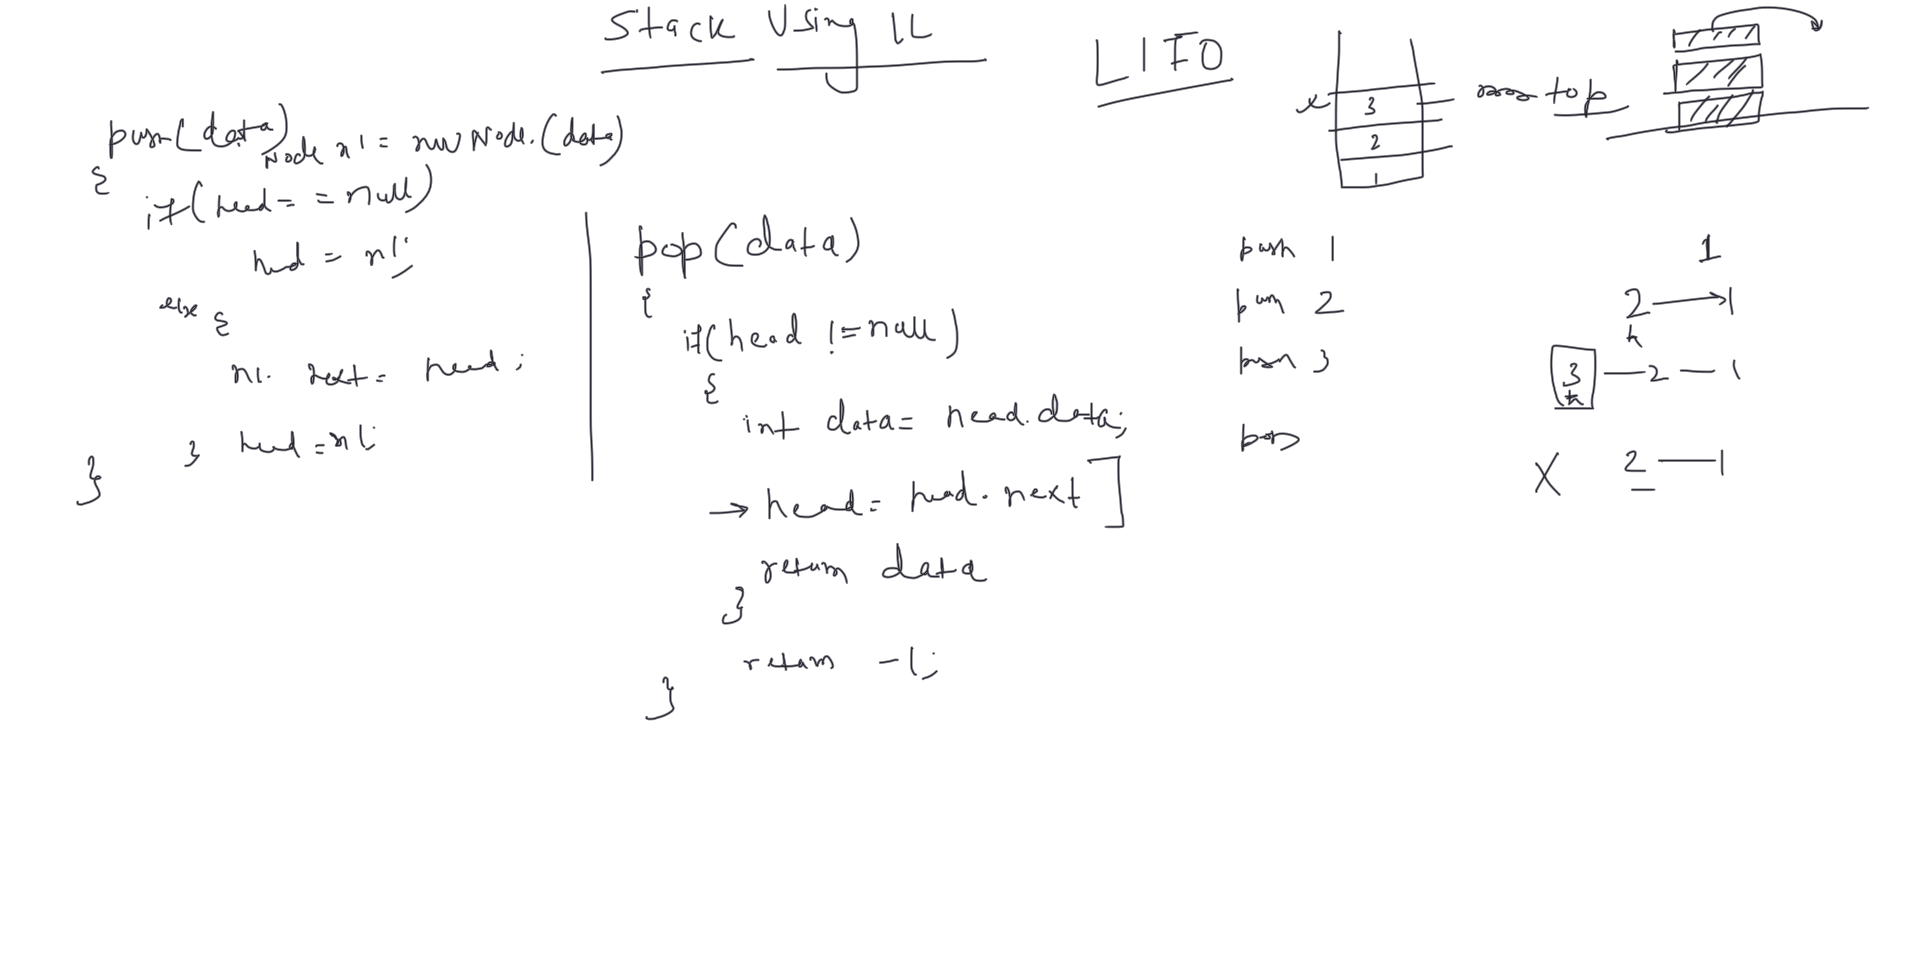 Stack Using LL
LIFO
push(data)
Node n1 = new Node.(data)
{
if(head = = null)
head = n1;
else {
n1. next = head ;
} head = n1;
}
pop(data)
{
if(head != null)
{
int data = head.data;
→ head = head. next ]
return data
}
return -1;
}
3
2
1
top
push 1
push 2
push 3
pop
1
2 → 1
h
3 — 2 — 1
h
X 2 — 1